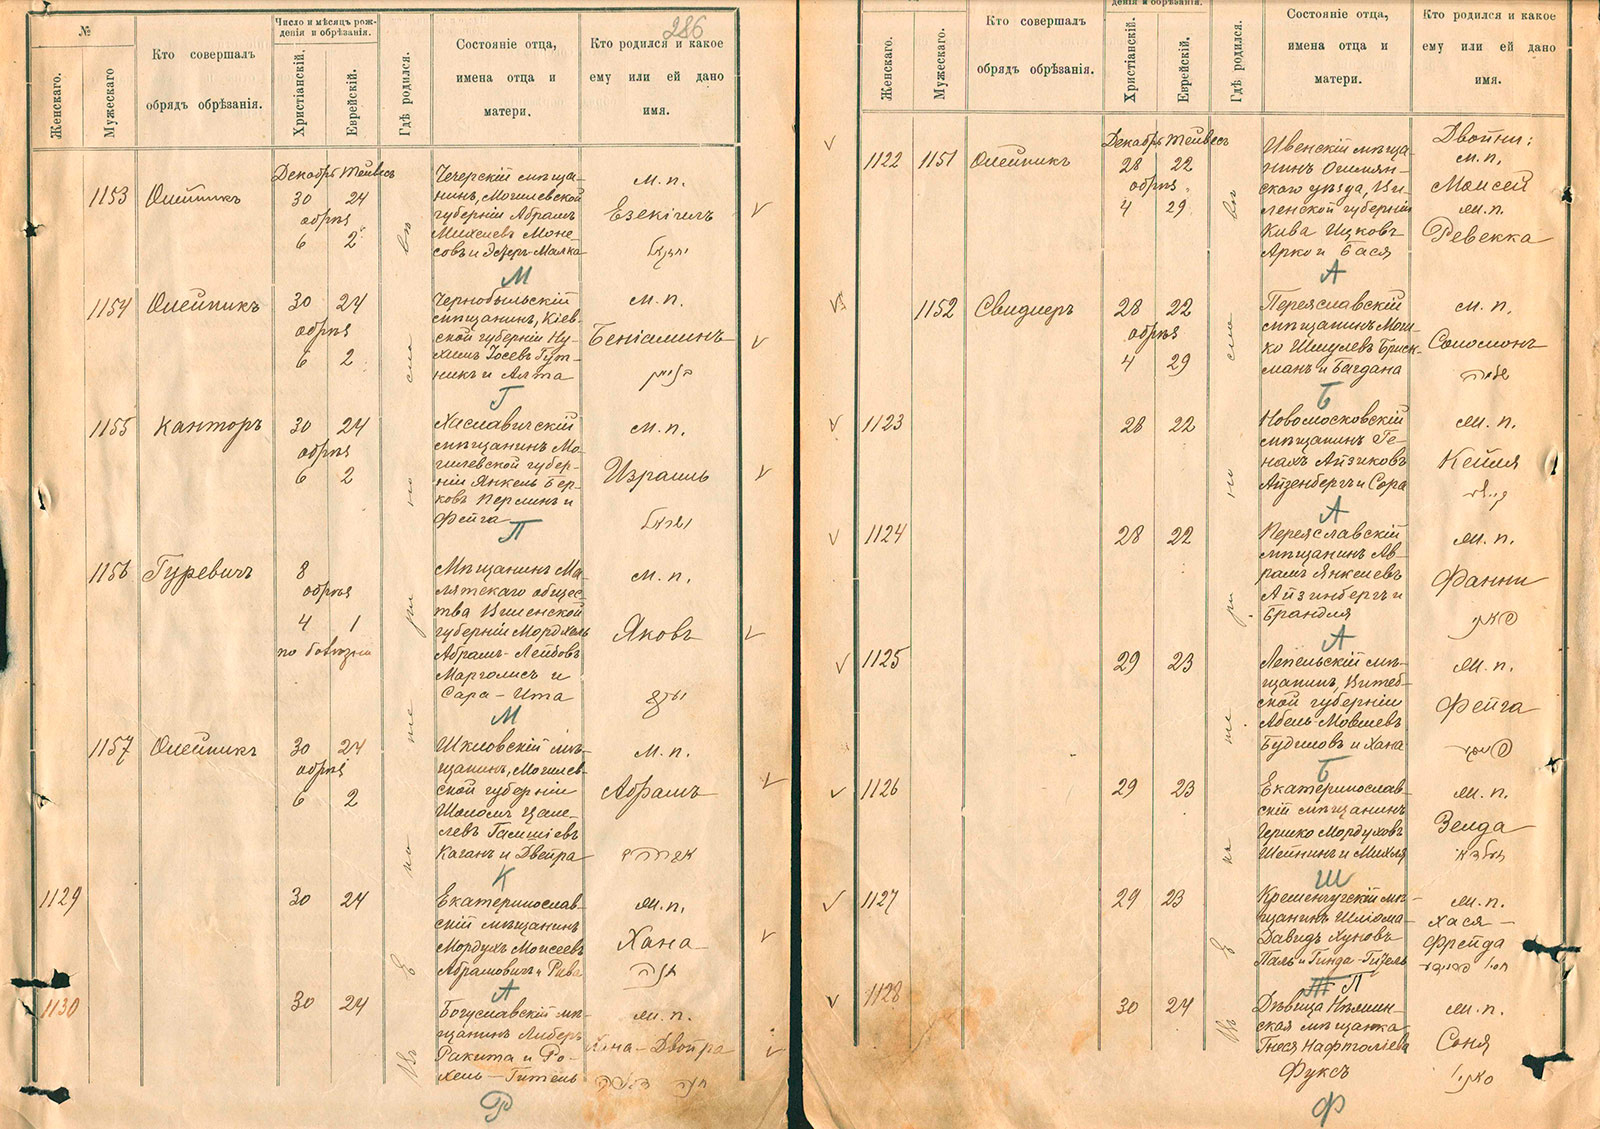 286
№
Женскаго.
Мужескаго
Кто совершалъ
обрядъ обрѣзанія.
Число и мѣсяцъ рож-
денія и обрѣзанія.
Христіанскій.
Еврейскій.
Гдѣ родился.
Состояніе отца,
имена отца и
матери.
Кто родился и какое
ему или ей дано
имя.
Декабрь Тейвесъ
1153 Олейникъ 30 24
обрѣз
6 2
Чечерскій мѣща-
нинъ, Могилевской
губерніи Абрамъ
Михелевъ Моне-
совъ и Эстеръ-Малка
м. п.
Езекіилъ
יחזקאל
М
1154 Олейникъ 30 24
обрѣз
6 2
Чернобыльскій
мѣщанинъ, Кіев-
ской губерніи Ну-
химъ Іосевъ Гут-
никъ и Алта
м. п.
Беніаминъ
בנימין
Г
1155 Канторъ 30 24
обрѣз
6 2
Хаславичскій
мѣщанинъ Мо-
гилевской губер-
ніи Янкель Бер-
ковъ Перлинъ и
Фейга
м. п.
Израиль
ישראל
П
1156 Гуревичъ 8
обрѣз
4 1
по болѣзни
Мѣщанинъ Ма-
лятскаго общес-
тва Виленской
губерніи Мордхель
Абрамъ-Лейбовъ
Марголисъ и
Сара-Ита
м. п.
Яковъ
יעקב
М
1157 Олейникъ 30 24
обрѣз
6 2
Шкловскій мѣ-
щанинъ, Могилев-
ской губерніи
Шоломъ Цале-
левъ Гамшіевъ
Каганъ и Двейра
м. п.
Абрамъ
אברהם
К
1129 30 24
Екатеринослав-
скій мѣщанинъ
Мордухъ Моисеевъ
Абрамовичъ и Рива
ж. п.
Хана
חנה
А
1130 30 24
Богуславскій мѣ-
щанинъ Либеръ
Ракита и Ро-
хель-Гитель
ж. п.
Хана-Двойра
חנה דבורה
Р
Женскаго.
Мужескаго.
Кто совершалъ
обрядъ обрѣзанія.
денія и обрѣзанія.
Христіанскій.
Еврейскій.
Гдѣ родился.
Состояніе отца,
имена отца и
матери.
Кто родился и какое
ему или ей дано
имя.
Декабрь Тейвесъ
1122 1151 Олейникъ 28 22
обрѣз
4 29
Ивенскій мѣща-
нинъ Ошмян-
скаго уѣзда, Ви-
ленской губерніи
Кива Ицковъ
Арко и Бася
Двойни:
м. п.
Моисей
ж. п.
Ревекка
А
1152 Свидлеръ 28 22
обрѣз
4 29
Переяславскій
мѣщанинъ Мош-
ко Шмулевъ Бриск-
манъ и Багдана
м. п.
Соломонъ
שלמה
Б
1123 28 22
Новомосковскій
мѣщанинъ Ге-
нахъ Айзиковъ
Айзенбергъ и Сора
ж. п.
Кейля
קיילא
А
1124 28 22
Переяславскій
мѣщанинъ Ав-
рамъ Янкелевъ
Айзинбергъ и
Брандля
ж. п.
Фанни
פאני
А
1125 29 23
Лепельскій мѣ-
щанинъ, Витеб-
ской губерніи
Абель Мовшевъ
Будиловъ и Хана
ж. п.
Фейга
פייגא
Б
1126 29 23
Екатеринослав-
скій мѣщанинъ
Гершко Мордуховъ
Шейнинъ и Михля
ж. п.
Зелда
זעלדא
Ш
1127 29 23
Кременчугскій мѣ-
щанинъ Шлома-
Давидъ Хуновъ
Паль и Гинда-Гитель
ж. п.
Хася-
Фрейда
П
1128 30 24
Дѣвица Нѣжин-
ская мѣщанка
Гнеся Нафтоліева
Фуксъ
ж. п.
Соня
סאניא
Ф